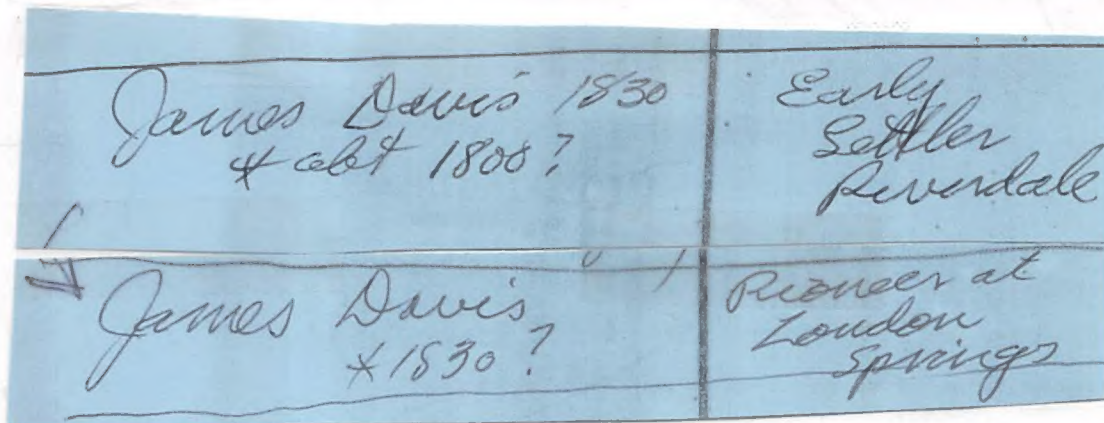 James Davis 1830
* abt 1800?
Early
Settler
Riverdale
James Davis
* 1830?
Pioneer at
London
Springs